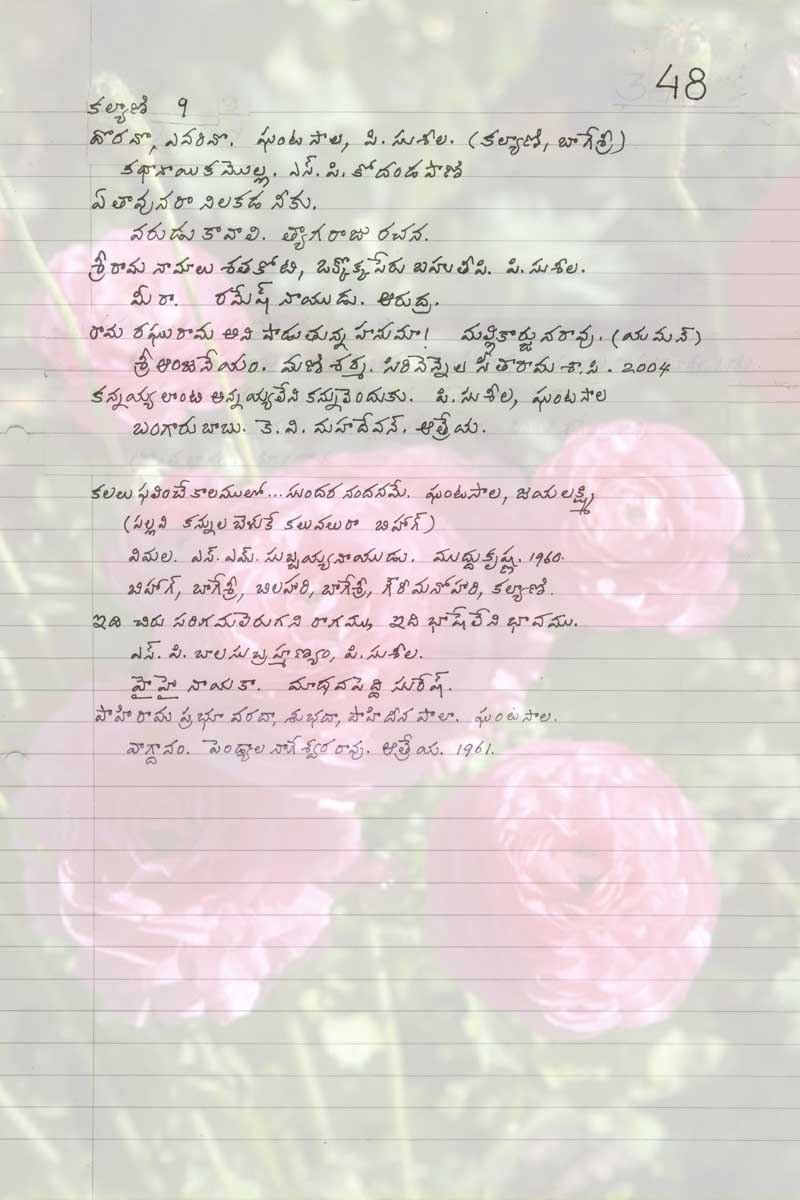 48
కల్యాణి 9
దొరనా, ఎవరినా. ఘంటసాల, పి. సుశీల. (కల్యాణి, బాగేశ్రీ)
కథానాయిక మొల్ల. ఎస్. పి. కోదండపాణి
ఏ తావునరా నిలకడ నీకు.
వరుడు కావాలి. త్యాగరాజు రచన.
శ్రీరామ నామాలు శతకోటి, ఒక్కొక్కపేరు బహుతీపి. పి. సుశీల.
మీరా. రమేష్ నాయుడు. ఆరుద్ర.
రామ రఘురామ అని పాడుతున్న హనుమా! మల్లికార్జునరావు. (యమన్)
శ్రీ ఆంజనేయం. మణిశర్మ. సిరివెన్నెల సీతారామ శా.పి. 2004
కన్నయ్యలాంటి అన్నయ్యలేని కన్నులెందుకు. పి. సుశీల, ఘంటసాల
బంగారుబాబు. కె. వి. మహదేవన్. ఆత్రేయ.
కలలు ఫలించే కాలములో... సుందర నందనమే. ఘంటసాల, జయలక్ష్మి
(పల్లవి కన్నుల బెళుకే కలువలురా బిహాగ్)
విమల. ఎస్. ఎమ్. సుబ్బయ్యనాయుడు. ముద్దుకృష్ణ. 1960.
బిహాగ్, బాగేశ్రీ, బిలహరి, బాగేశ్రీ, గౌరీమనోహరి, కల్యాణి.
ఇది చిరు సరిగమలెరుగని రాగము, ఇది భాషేలేని భావము.
ఎస్. పి. బాలసుబ్రహ్మణ్యం, పి. సుశీల.
హైహై నాయకా. మాధవపెద్ది సురేష్.
పాహిరామ ప్రభూ వరదా, శుభదా, పాహి దీన పాలా. ఘంటసాల.
వాగ్దానం. పెండ్యాల నాగేశ్వరరావు. ఆత్రేయ. 1961.